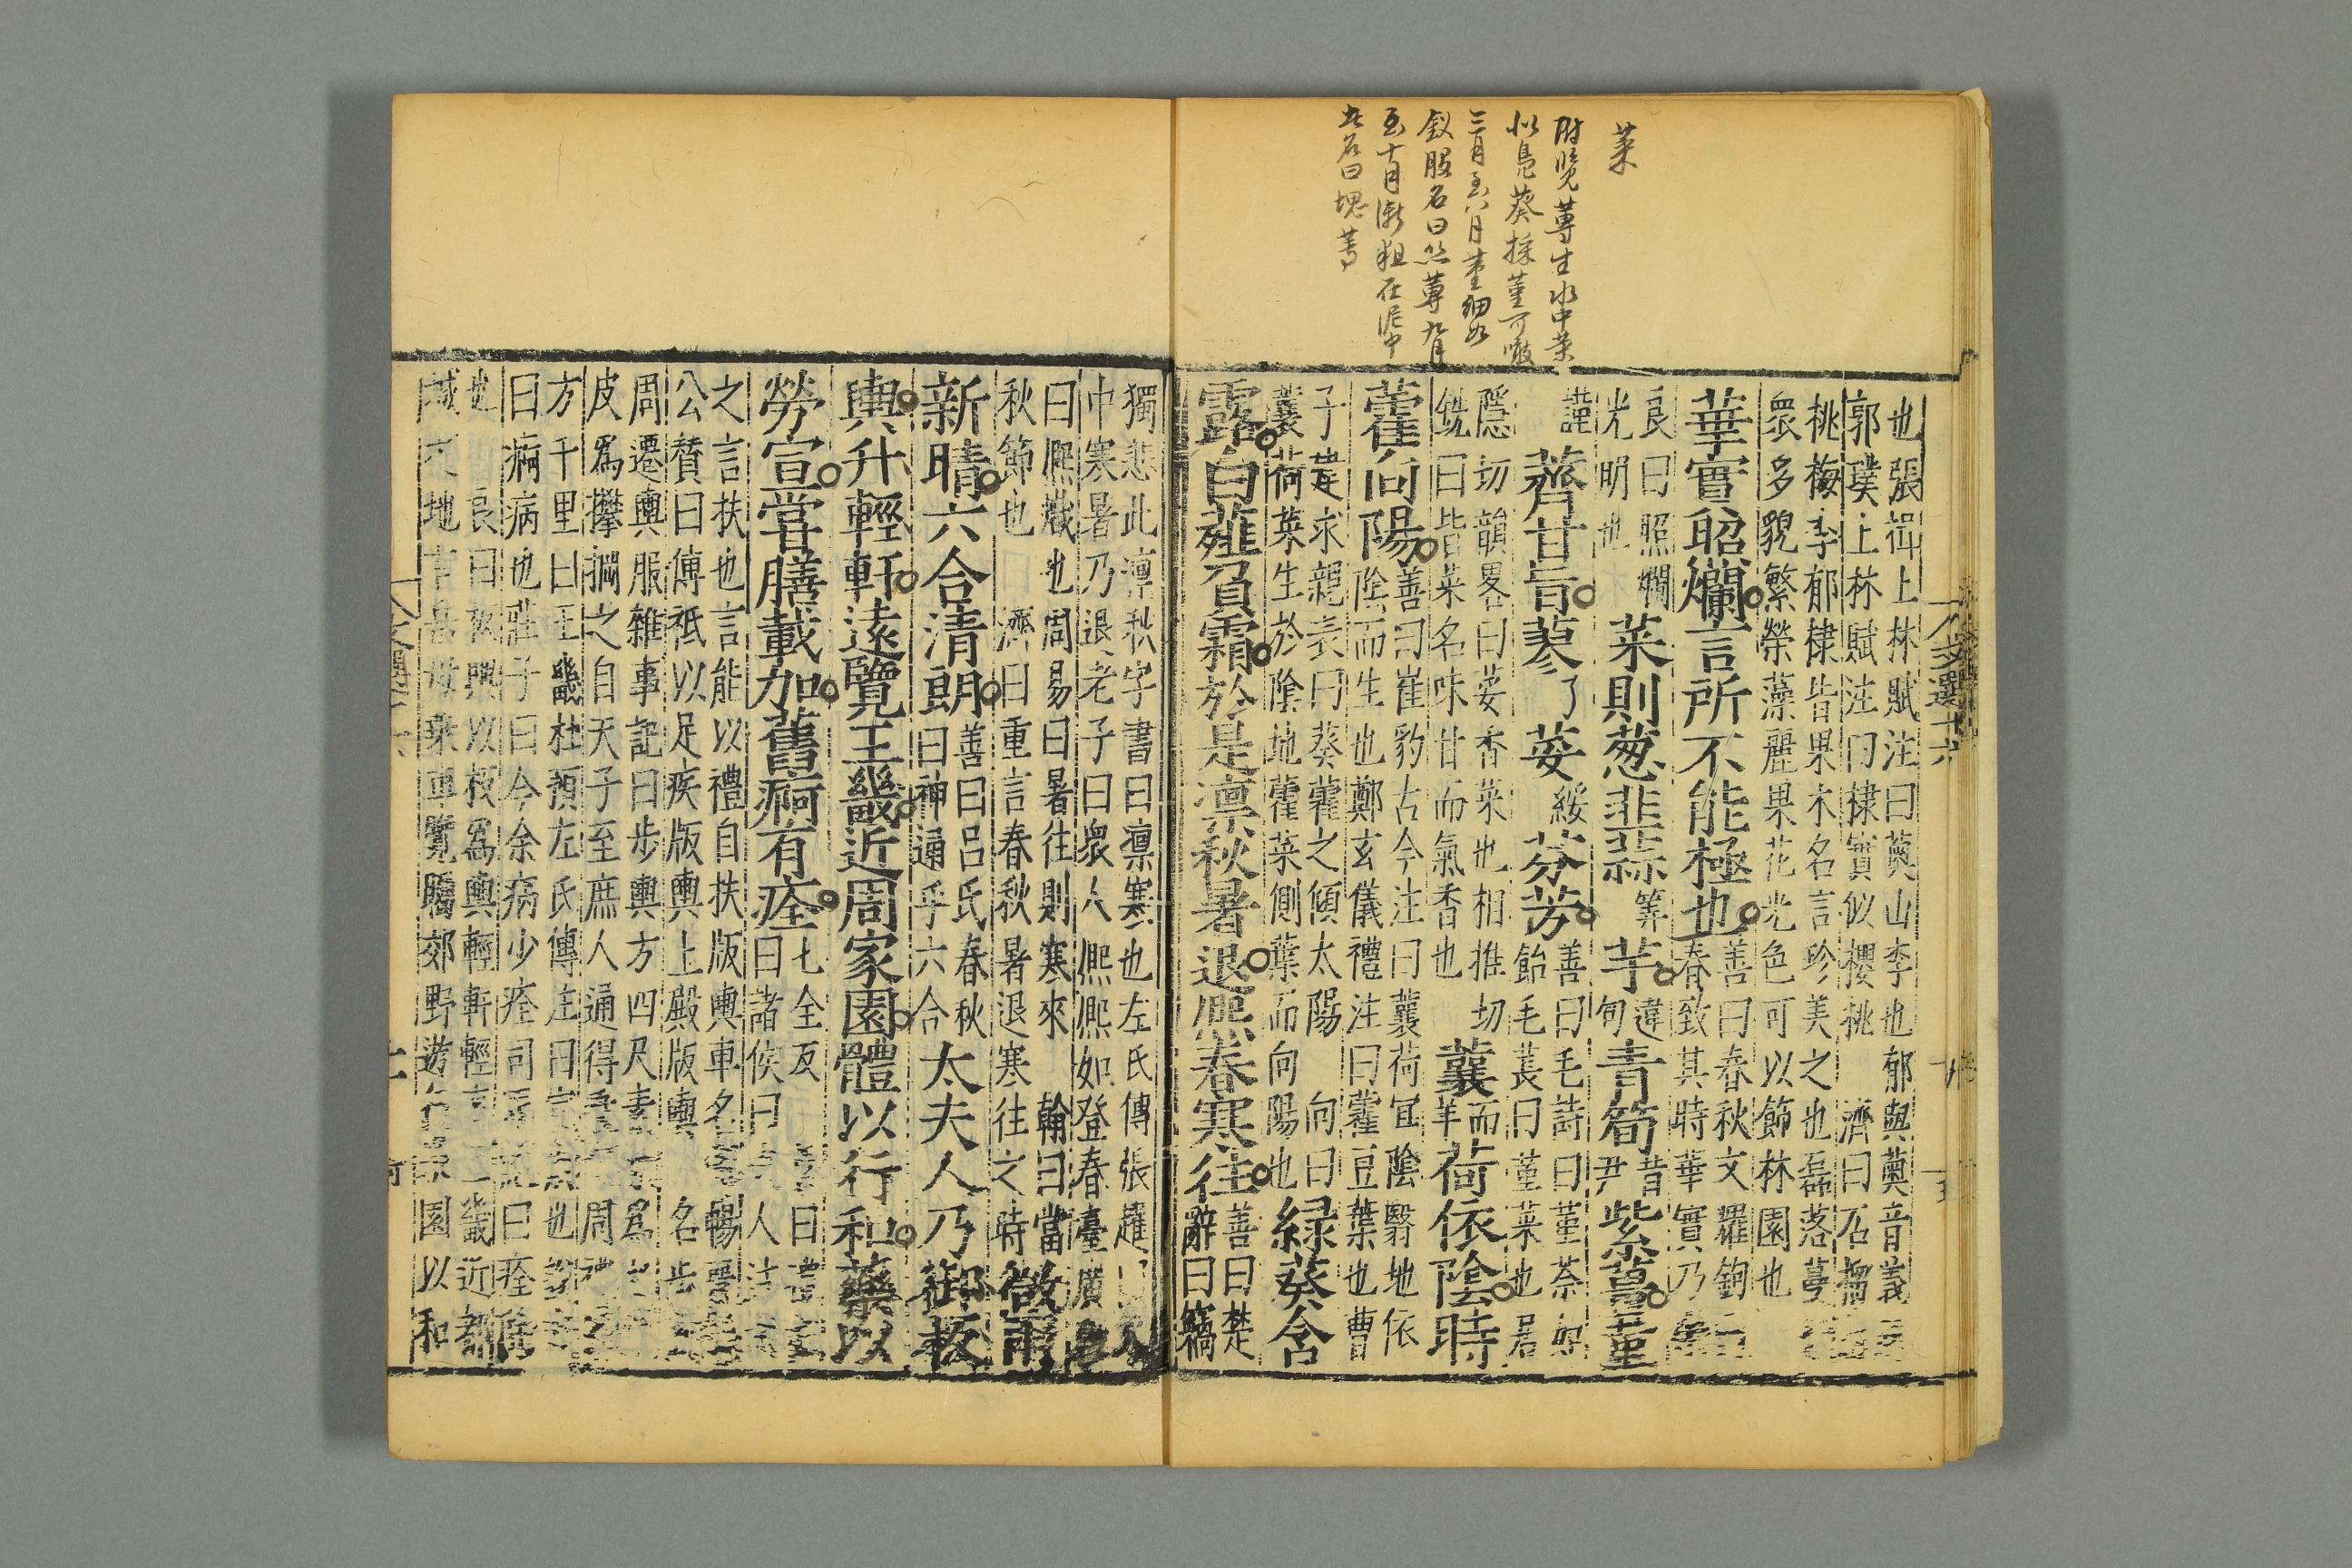 菜
附覽蓴生水中葉
似鳧葵採莖可噉
三月至八月莖細如
釵股名曰絲蓴九月
至十月漸粗在泥中
名曰塊蓴
文選十六
也張揖上林賦注曰薁山李也郁與薁音義
郭璞上林賦注曰棣實似櫻桃 濟曰石榴
桃梅李郁棣皆果木名言珍美之也磊落蔓
衆多貌繁榮藻麗果花光色可以節林園也
華實照爛言所不能極也
善曰春秋文耀鉤
春致其時華實乃
良曰照爛
光明也
菜則葱韭蒜
筭
芋
違
旬
青筍
昔
尹
紫薑堇
謹
薺甘旨蓼
了
荽
綏
芬芳
善曰毛詩曰堇荼如
飴毛萇曰堇菜也居
隱切韻畧曰荽香菜也相推切
銑曰皆菜名味甘而氣香也
蘘
而
羊
荷依陰時
藿向陽
善曰崔豹古今注曰蘘荷宜陰翳地依
陰而生也鄭玄儀禮注曰藿豆葉也曹
子建求親表曰葵藿之傾太陽 向曰
蘘荷菜生於陰地藿菜側葉而向陽也
綠葵含
露白薤負霜於是凛秋暑退熈春寒往
善曰楚
辭曰竊
獨悲此凛秋字書曰凛寒也左氏傳張趯曰
中寒暑乃退老子曰衆人熈熈如登春臺廣
曰熈戲也周易曰暑往則寒來 翰曰當
秋節也 濟曰重言春秋暑退寒往之時
微雨
新晴六合清朗
善曰吕氏春秋
曰神通乎六合
太夫人乃御板
輿升輕軒遠覽王畿近周家園體以行和藥以
勞宣嘗膳載加舊痾有痊
七全反
曰諸侯曰 人
之言扶也言能以禮自扶版輿車名
公贊曰傅祇以足疾版輿上殿版輿 名步
周遷輿服雜事記曰步輿方四尺素 爲
皮爲攀掆之自天子至庶人通得 周禮
方千里曰王畿杜預左氏傳注曰宣 也
曰痾病也莊子曰今余病少痊司馬 曰痊
也 良曰秋興以板爲輿輕軒輕 畿近
城 地 乘車覽矚郊野遊 園以和